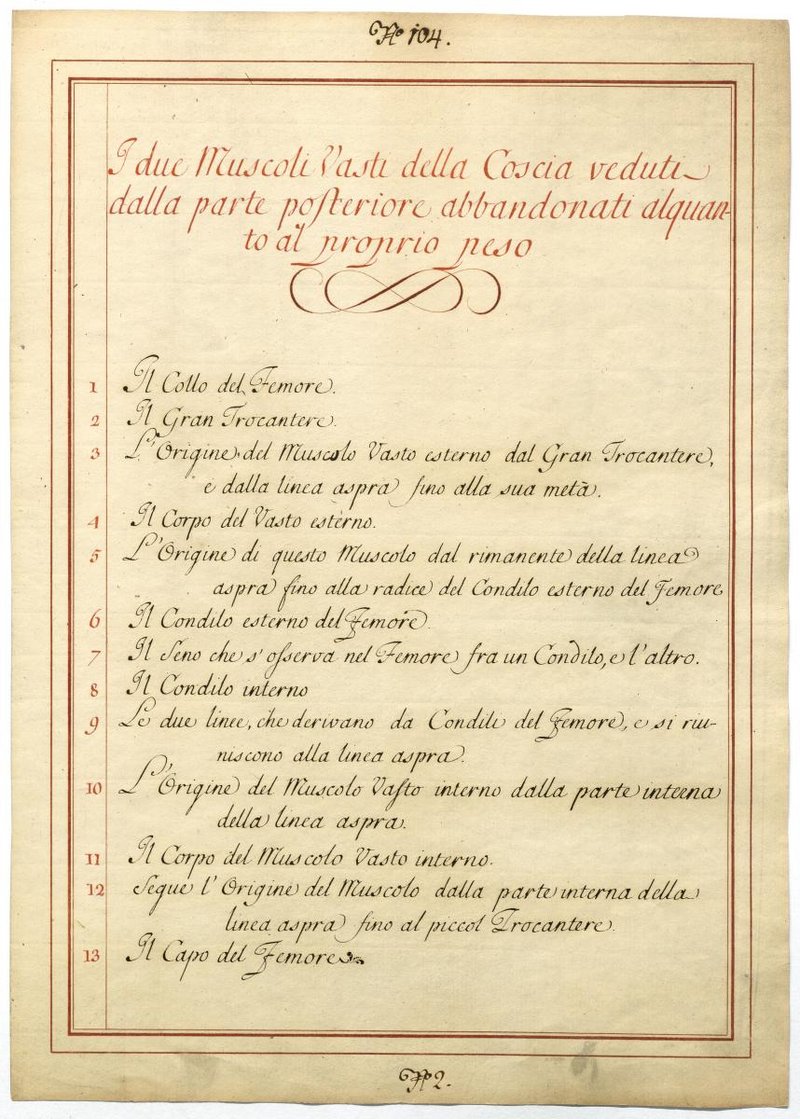 No 104.
I due Muscoli Vasti della Coscia veduti
dalla parte posteriore abbandonati alquan-
to al proprio peso
1 Il Collo del Femore.
2 Il Gran Trocantere.
3 L'Origine del Muscolo Vasto esterno dal Gran Trocantere,
e dalla linea aspra fino alla sua metà.
4 Il Corpo del Vasto esterno.
5 L'Origine di questo Muscolo dal rimanente della linea
aspra fino alla radice del Condilo esterno del Femore
6 Il Condilo esterno del Femore.
7 Il Seno che s'osserva nel Femore fra un Condilo, e l'altro.
8 Il Condilo interno
9 Le due linee, che derivano da Condili del Femore, e si riu-
niscono alla linea aspra.
10 L'Origine del Muscolo Vasto interno dalla parte interna
della linea aspra.
11 Il Corpo del Muscolo Vasto interno.
12 Segue l'Origine del Muscolo dalla parte interna della
linea aspra fino al piccol Trocantere.
13 Il Capo del Femore
No 2.